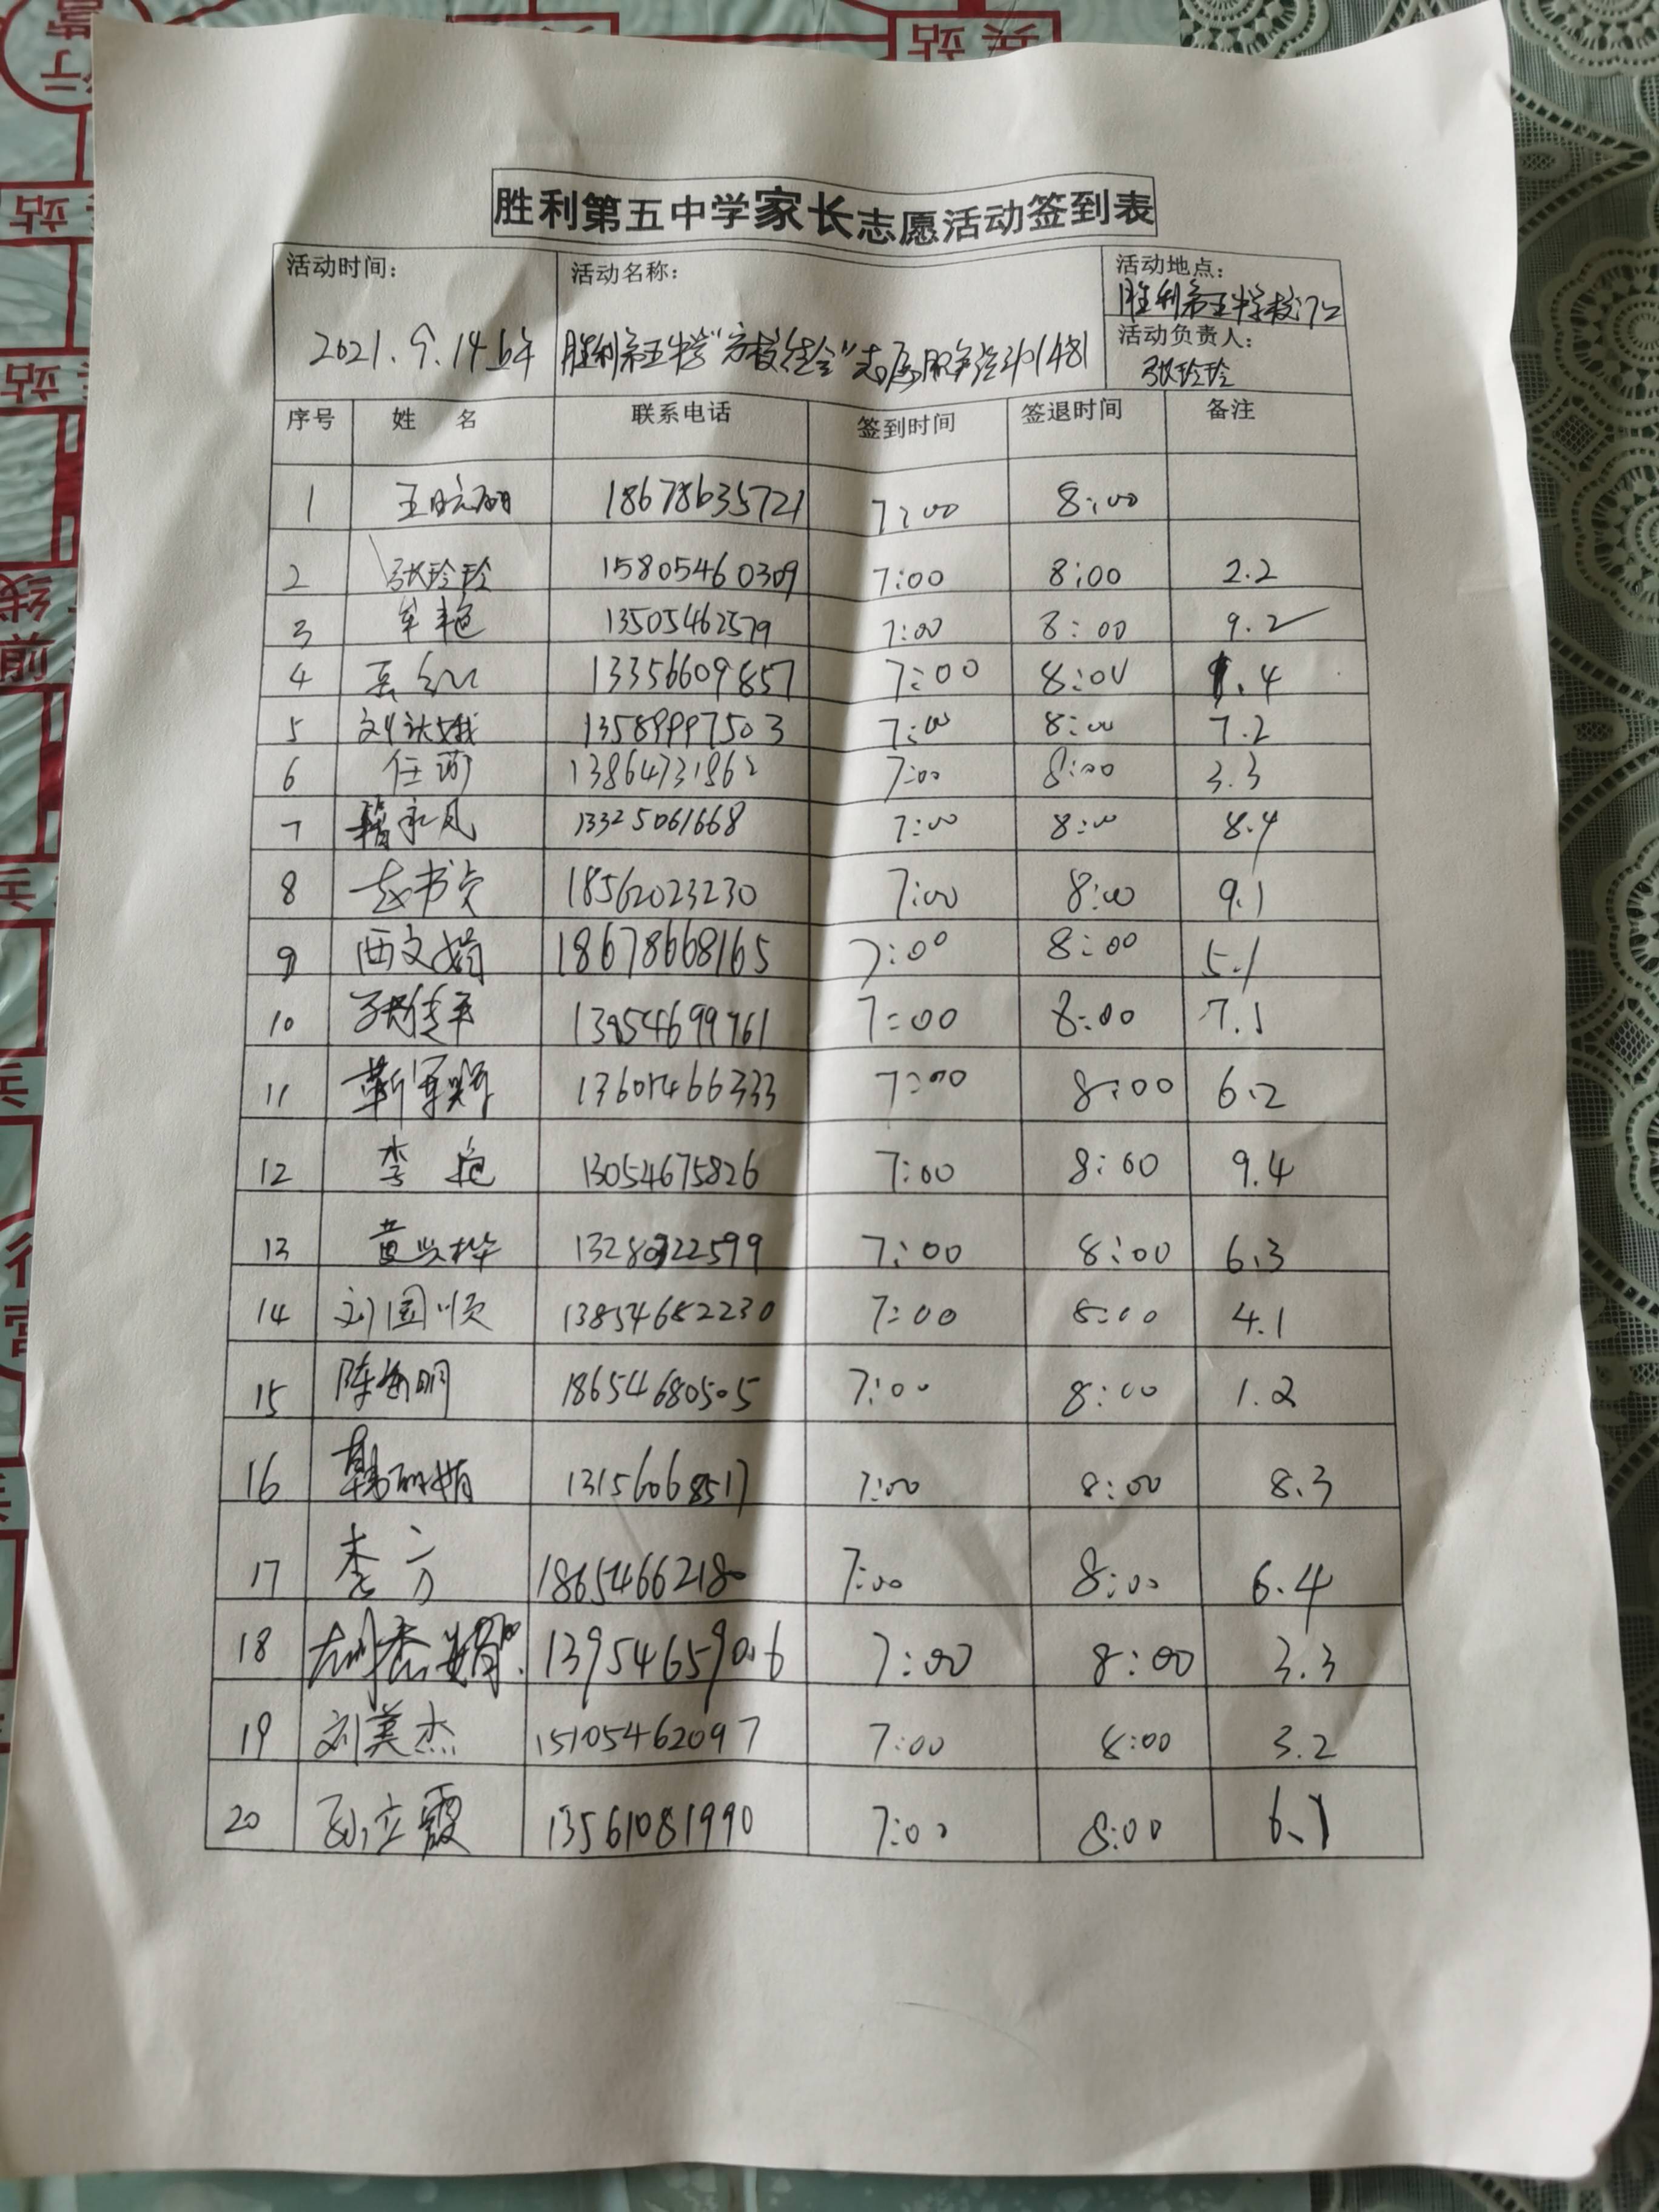 胜利第五中学家长志愿活动签到表
活动时间: 活动名称: 活动地点:
胜利第五中学校门口
活动负责人:
2021.9.14 胜利第五中学 志愿服务 张玲玲
序号 姓 名 联系电话 签到时间 签退时间 备注
1 王 18678635721 7:00 8:00
2 张玲玲 15805460309 7:00 8:00 2.2
3 牟艳 13505462579 7:00 8:00 9.2
4 13356609857 7:00 8:00 1.4
5 刘 13589997503 7:00 8:00 7.2
6 任莎 13864731862 7:00 8:00 3.3
7 永凤 13325061668 7:00 8:00 8.4
8 赵书贞 18562023230 7:00 8:00 9.1
9 西文娟 18678668165 7:00 8:00 5.1
10 7:00 8:00 7.1
11 靳军辉 7:00 8:00 6.2
12 李艳 13054675826 7:00 8:00 9.4
13 黄兴桦 7:00 8:00 6.3
14 刘国顺 13854682230 7:00 8:00 4.1
15 陈海明 18654680505 7:00 8:00 1.2
16 韩丽娟 13156068517 7:00 8:00 8.3
17 李方 18654662180 7:00 8:00 6.4
18 7:00 8:00 3.3
19 刘美杰 15105462097 7:00 8:00 3.2
20 孙立霞 13561081990 7:00 8:00 6.1
行营
兵站